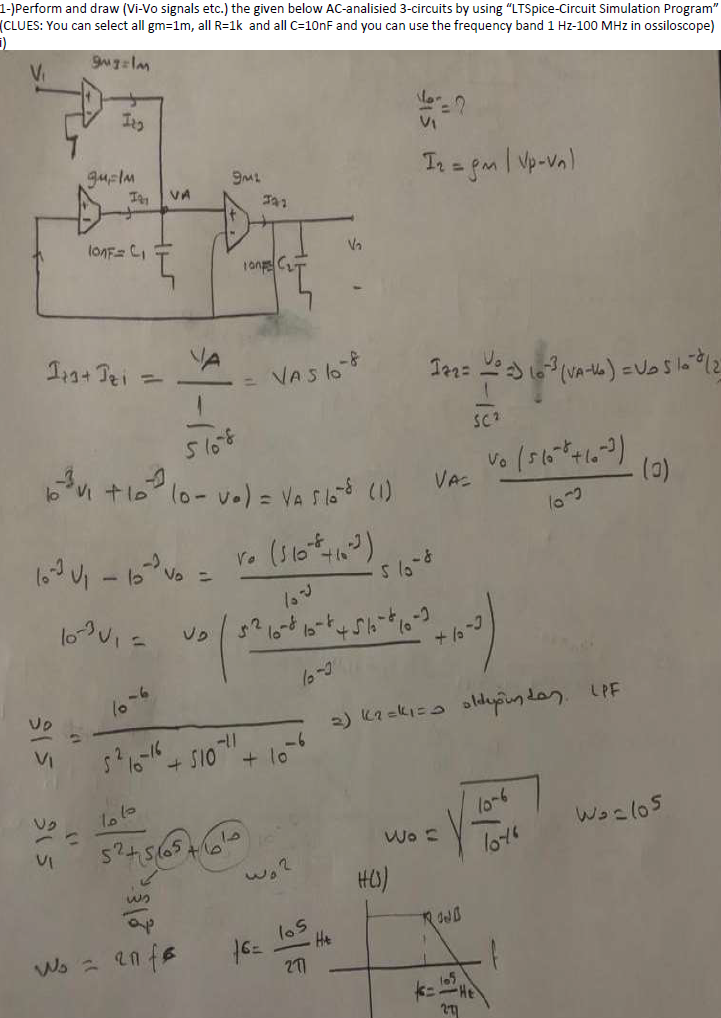 1-)Perform and draw (Vi-Vo signals etc.) the given below AC-analisied 3-circuits by using “LTSpice-Circuit Simulation Program”
(CLUES: You can select all gm=1m, all R=1k and all C=10nF and you can use the frequency band 1 Hz-100 MHz in ossiloscope)
i)
gm3=1m
V1
Iz3
Vo/V1 = ?
Iz = gm (Vp-Vn)
gm1=1m
Iz1
VA
gm2
Iz2
10nF= C1
10nF C2
Vo
Iz3 + Iz1 = VA / (1 / S10^-8) = VA S 10^-8
Iz2 = Vo / (1 / SC2) => 10^-3 (VA-Vo) = Vo S 10^-8 (2
10^-3 V1 + 10^-3 (0 - Vo) = VA S 10^-8 (1)
VA = Vo (S10^-8 + 10^-3) / 10^-3 (3)
10^-3 V1 - 10^-3 Vo = Vo (S10^-8 + 10^-3) / 10^-3 S 10^-8
10^-3 V1 = Vo ( (S^2 10^-8 10^-8 + S10^-8 10^-3) / 10^-3 + 10^-3 )
Vo/V1 = 10^-6 / (S^2 10^-16 + S10^-11 + 10^-6) => K2 = K1 = 0 olduğundan. LPF
Vo/V1 = 10^10 / (S^2 + S10^5 + 10^10)
wo/Qp
wo^2
wo = √(10^-6 / 10^-16)
wo = 10^5
wo = 2π fo
fo = 10^5 / 2π Hz
H(s)
3dB
f
fo = 10^5 / 2π Hz